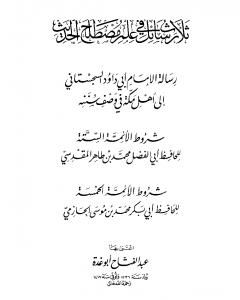 ثلاث رسائل في علم مصطلح الحديث
رسالة الإمام أبي داود السجستاني
إلى أهل مكة في وصف سننه
شروط الأئمة الستة
للحافظ أبي الفضل محمد بن طاهر المقدسي
شروط الأئمة الخمسة
للحافظ أبي بكر محمد بن موسى الحازمي
اعتنى بها
عبد الفتاح أبو غدة
ولد سنة ١٣٣٦ وتوفي سنة ١٤١٧
رحمه الله تعالى